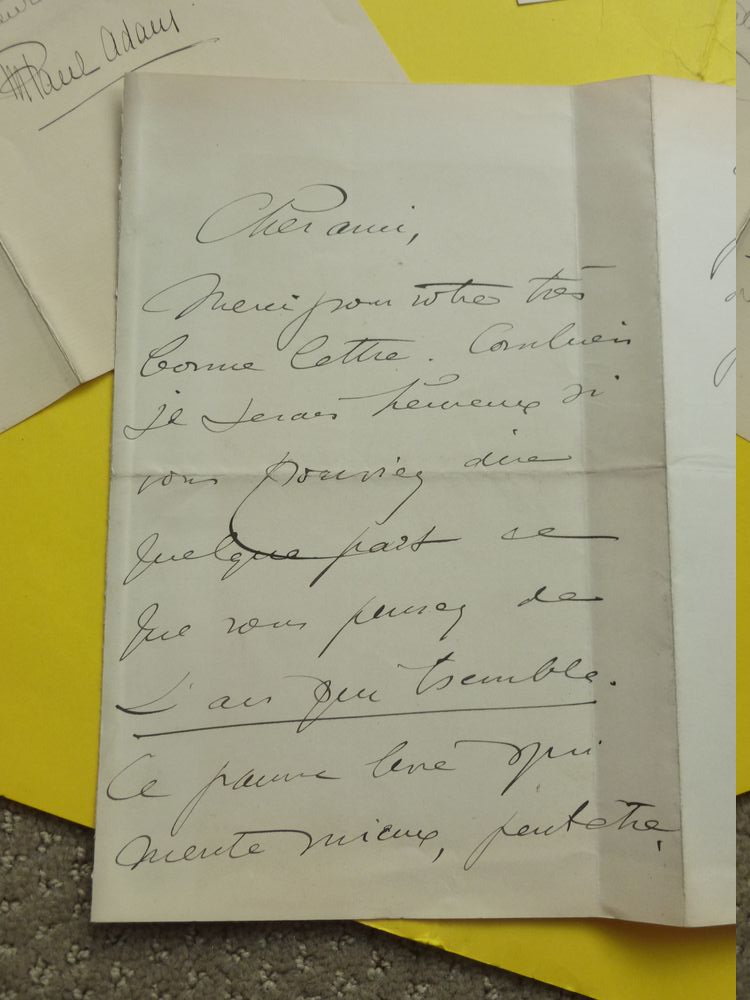 M Paul Adam
Cher ami,
Merci pour votre très
bonne lettre. Combien
je serais heureux si
vous pouviez dire
quelque part ce
que vous pensez de
L'air qui tremble.
Ce pauvre livre qui
mérite mieux, peut être,